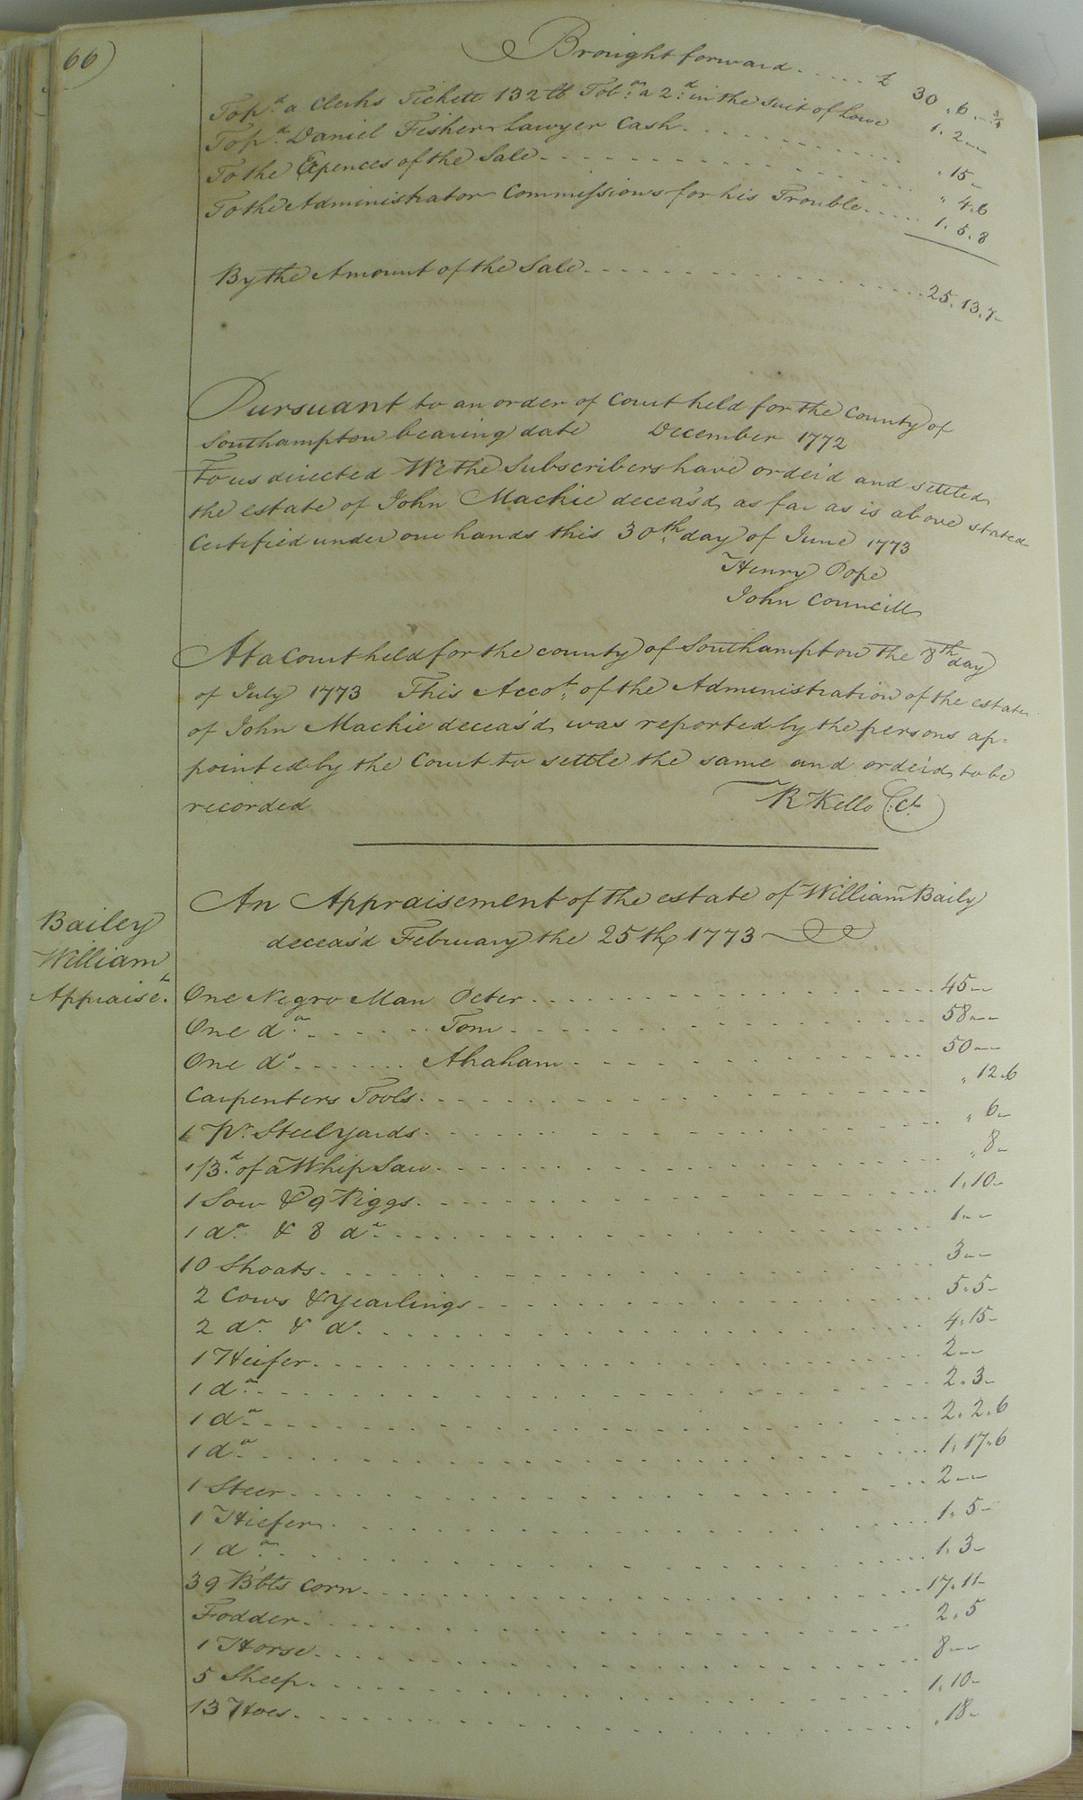 66)
Brought forward ..... £ 30 . 6 . 3/4
To pd. a Clerks Tickett 132 lb Tobo. a 2d. in the Suit of Lowe 1 . 2 --
To pd. Daniel Fisher Lawyer Cash ..... " 15 -
To the Expences of the Sale ..... " 4 . 6
To the Administrator Commissions for his Trouble ..... 1 . 5 . 8
By the Amount of the Sale ..... 25 . 13 . 7 -
Pursuant to an order of Court held for the County of
Southampton bearing date December 1772
To us directed We the Subscribers have order'd and settled
the estate of John Mackie deceas'd as far as is above stated
Certified under our hands this 30th. day of June 1773
Henry Pope
John Councill
At a Court held for the county of Southampton the 8th day
of July 1773 This Accot. of the Administration of the estate
of John Mackie deceas'd was reported by the persons ap-
pointed by the Court to settle the same and order'd to be
recorded R Kello C: Ct.
Bailey
William
Appraiset.
An Appraisement of the estate of William Baily
deceas'd February the 25th 1773
One Negro Man Peter ..... 45 --
One do. ..... Tom ..... 58 --
One do. ..... Abraham ..... 50 --
Carpenters Tools ..... " 12 . 6
1 Pr. Steelyards ..... " 6 -
1/3d. of a Whip Saw ..... " 8 -
1 Sow & 9 Piggs ..... 1 . 10 -
1 do. & 8 do. ..... 1 --
10 Shoats ..... 3 --
2 Cows & Yearlings ..... 5 . 5 -
2 do. & do. ..... 4 . 15 -
1 Heifer ..... 2 --
1 do. ..... 2 . 3 -
1 do. ..... 2 . 2 . 6
1 do. ..... 1 . 17 . 6
1 Steer ..... 2 --
1 Hiefer ..... 1 . 5 -
1 do. ..... 1 . 3 -
39 Bbls Corn ..... 17 . 11 -
Fodder ..... 2 . 5
1 Horse ..... 8 --
5 Sheep ..... 1 . 10 -
13 Hoes ..... " 18 -